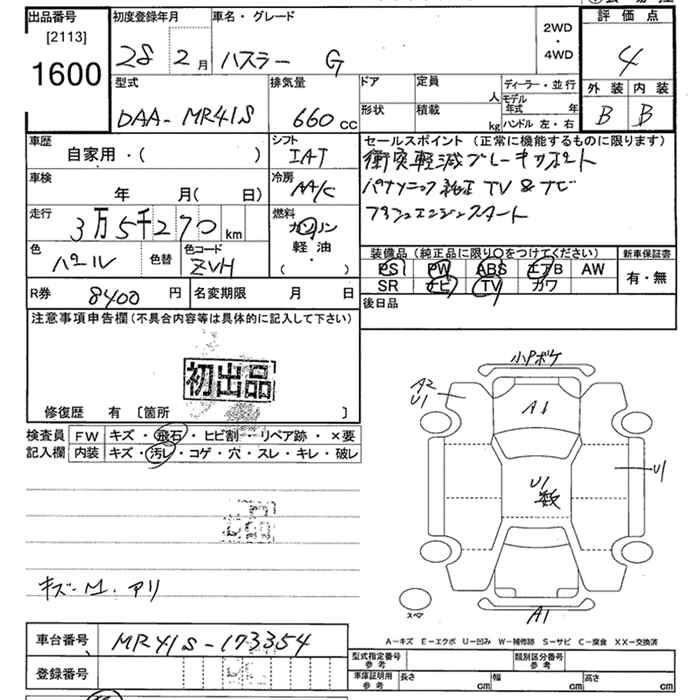 出品番号
[2113]
1600
初度登録年月
28 2月
車名・グレード
ハスラー G
2WD
・
4WD
評価点
4
外装 内装
B B
型式
DAA-MR41S
排気量
660 CC
ドア
定員
人
形状
積載
kg
ディーラー・並行
モデル年式 年
ハンドル 左・右
車歴
自家用・( )
シフト
IAT
セールスポイント (正常に機能するものに限ります)
衝突軽減ブレーキサポート
パナソニック純正 TV & ナビ
プッシュエンジンスタート
車検
年 月(日)
冷房
AA/C
走行
3万5千270 km
燃料
ガソリン
軽油・
( )
色
パール
色替
色コード
ZVH
装備品 (純正品に限り○をつけてください)
PS PW ABS エアB AW
SR ナビ TV カワ
新車保証書
有・無
R券 8400 円
名変期限 月 日
後日品
注意事項申告欄 (不具合内容等は具体的に記入して下さい)
初出品
修復歴 有 [箇所 ]
検査員
記入欄
FW キズ・飛石・ヒビ割・リペア跡・×要
内装 キズ・汚レ・コゲ・穴・スレ・キレ・破レ
小Pボケ
A2
U1
A1
U1
U1
数
A1
スペア
キズ-M.アリ
A-キズ E-エクボ U-凹み W-補修跡 S-サビ C-腐食 XX-交換済
車台番号
MR41S-173354
登録番号
型式指定番号
参考
類別区分番号
参考
車庫証明用
参考
長さ cm
幅 cm
高さ cm